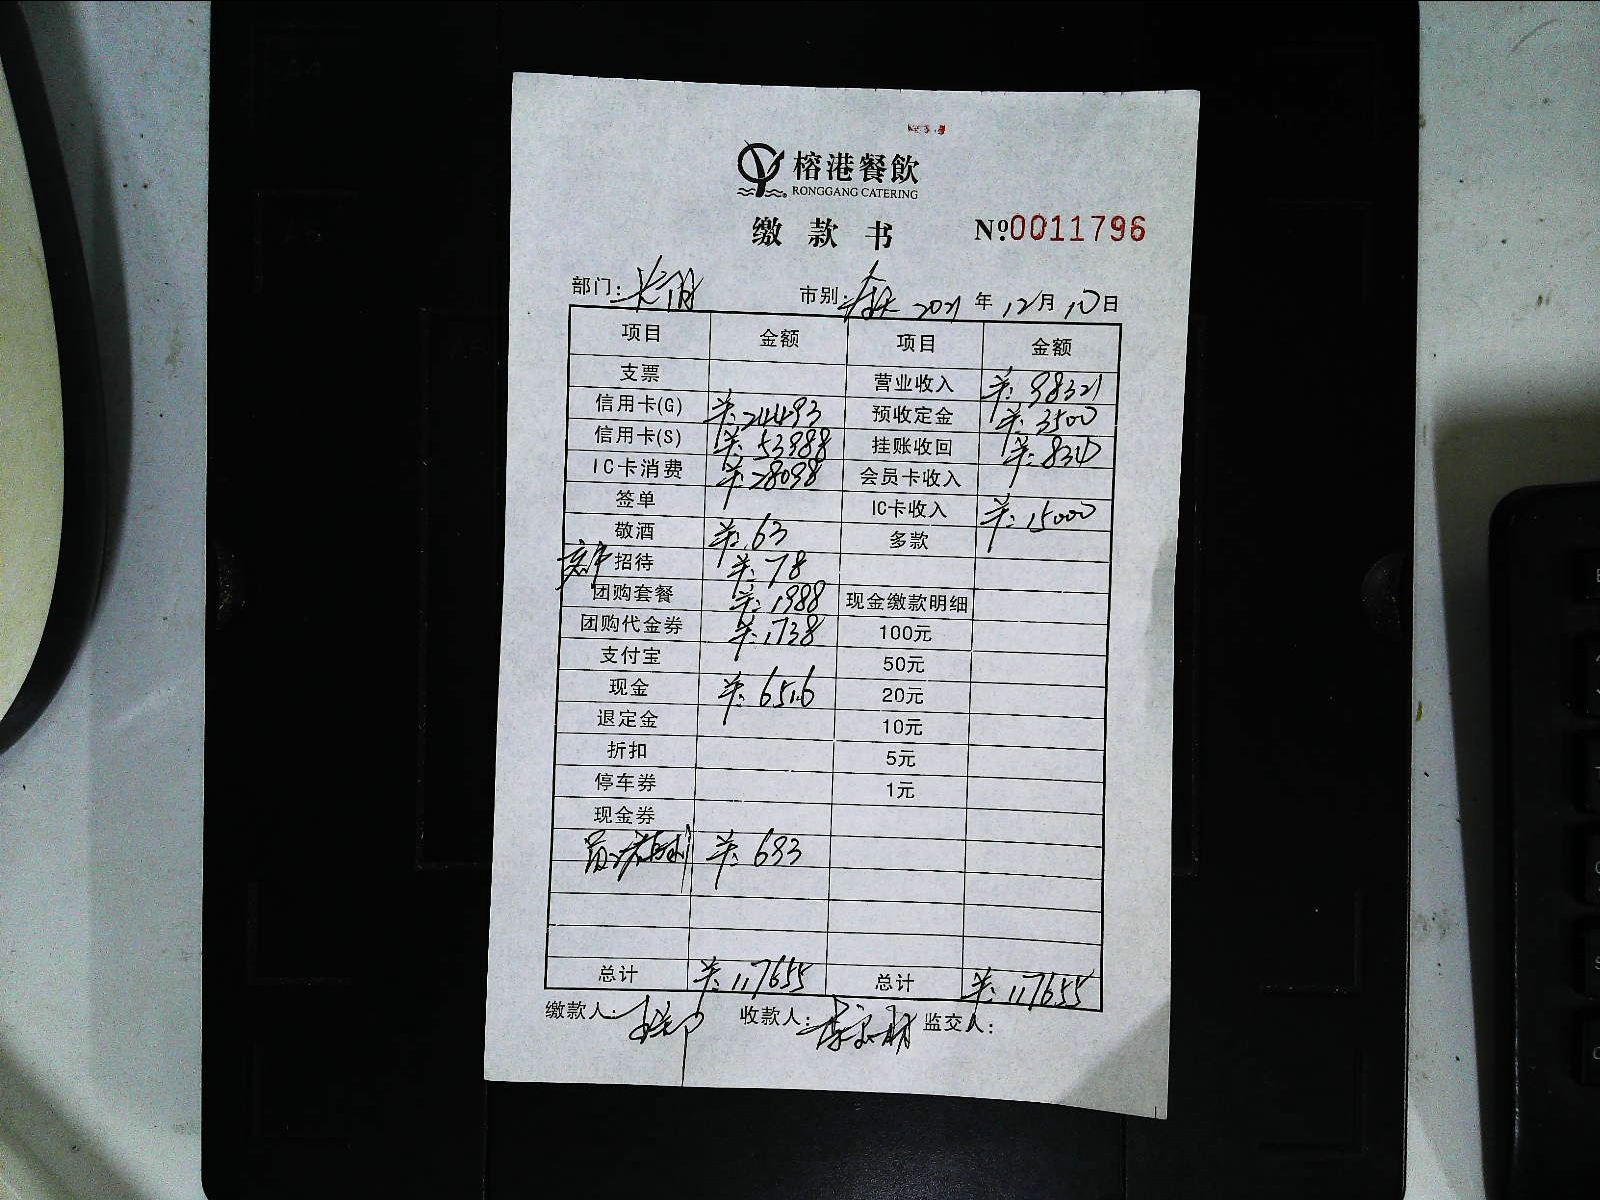 榕港餐飲
RONGGANG CATERING
缴款书 №0011796
部门: 市别: 2021年12月10日
项目 金额 项目 金额
支票 营业收入 ¥:98321
信用卡(G) ¥:24493 预收定金 ¥:3500
信用卡(S) ¥:53988 挂账收回 ¥:834
IC卡消费 ¥:28098 会员卡收入
签单 IC卡收入 ¥:15000
敬酒 ¥:63 多款
招待 ¥:78
团购套餐 ¥:1988 现金缴款明细
团购代金券 ¥:1738 100元
支付宝 50元
现金 ¥:6516 20元
退定金 10元
折扣 5元
停车券 1元
现金券
¥:693
总计 ¥:117655 总计 ¥:117655
缴款人: 收款人: 监交人: